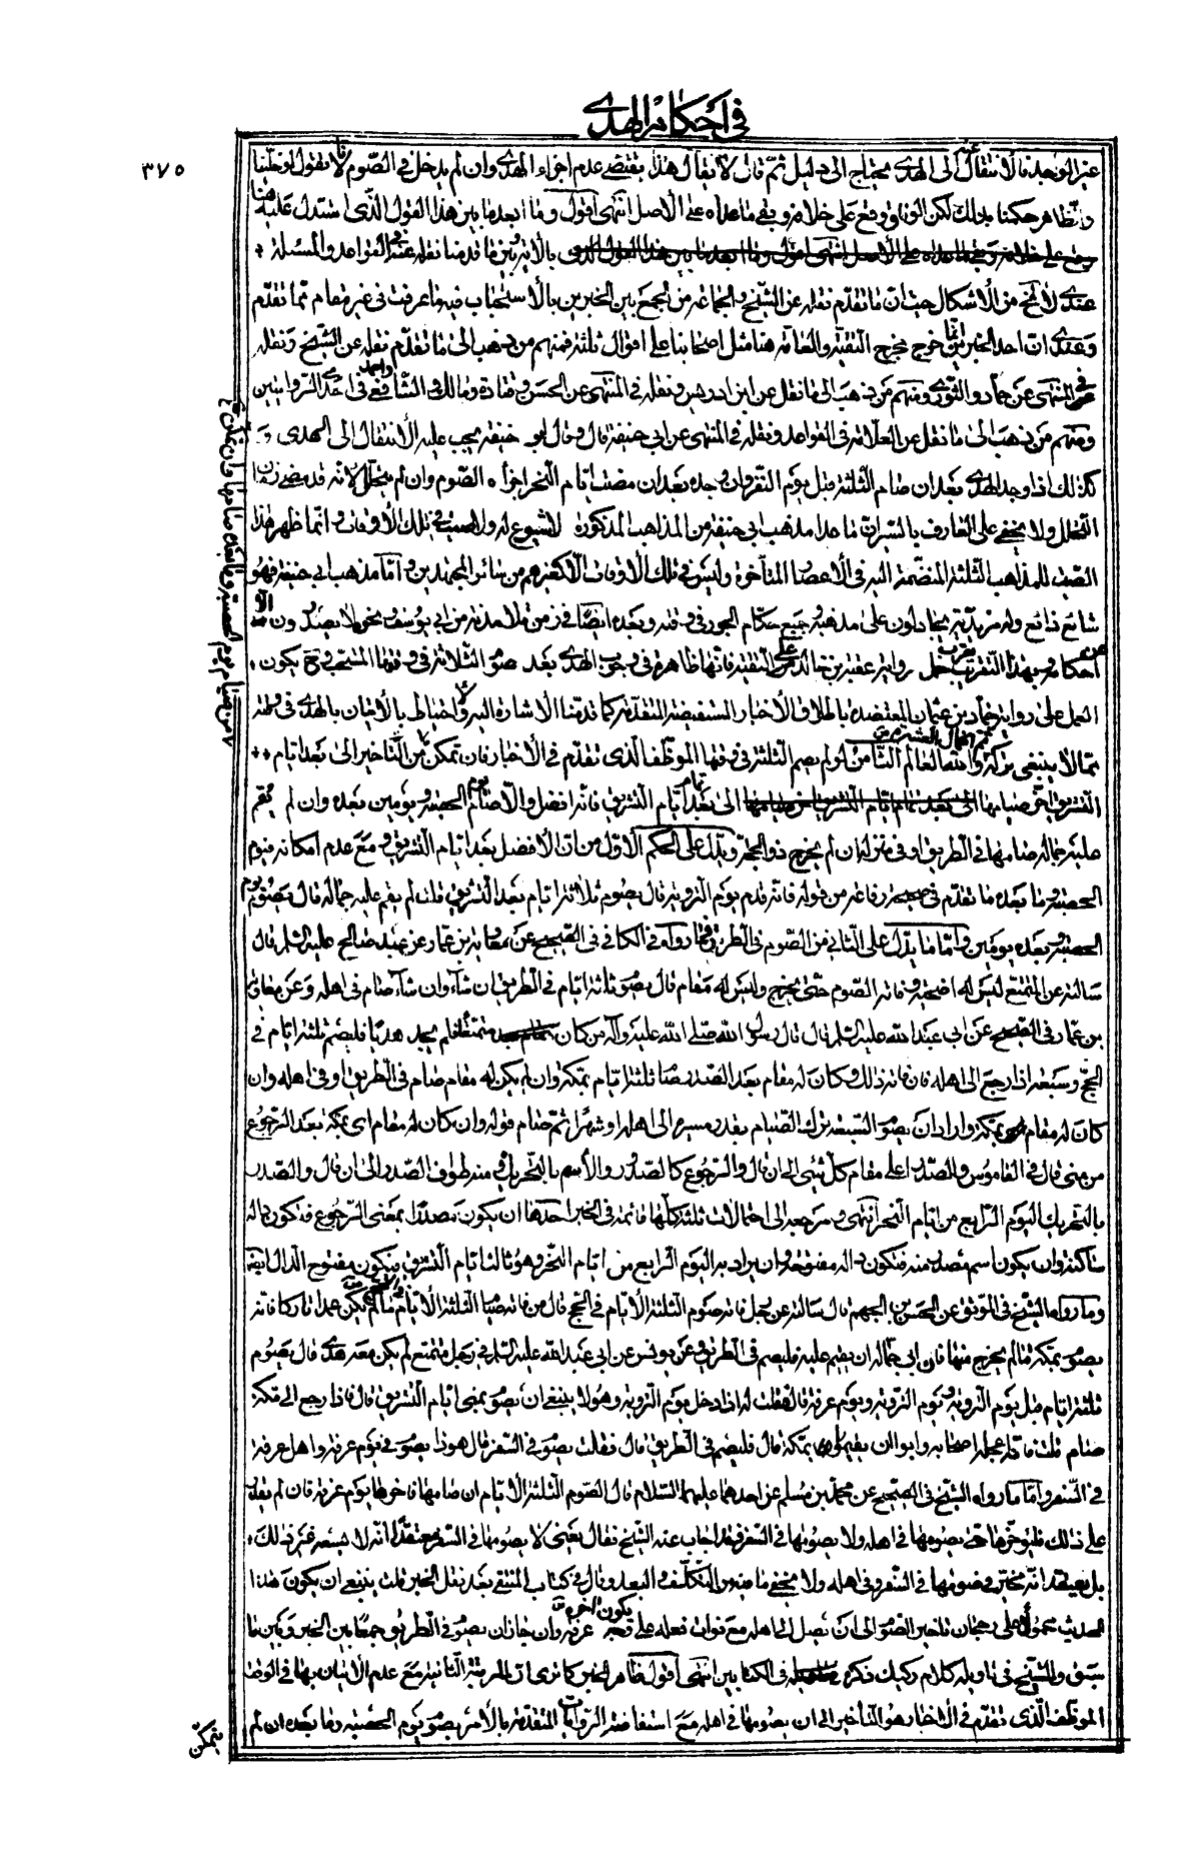 في احكام الهدي
٣٧٥
غير الواجد فالانتقال عنه الى الهدي يحتاج الى دليل ثم قال لا يقال هذا يقتضي عدم اجزاء الهدي وان لم يدخل في الصوم لانا نقول لو خلينا
والظاهر حكمنا بذلك لكن الوفاق وقع على خلافه وبقي ما عداه على الاصل انتهى اقول وما ابعد ما بين هذا القول الذي استدل عليه هنا
بالاية وبين ما قدمنا نقله عنه في القواعد والمسئلة
عندي لا تخ من الاشكال حيث ان ما تقدم نقله عن الشيخ والجماعة من الجمع بين الخبرين بالاستحباب فيه ما عرفت في غير مقام مما تقدم
وعندي ان احد الخبرين انما خرج مخرج التقية والعامة هنا مثل اصحابنا على اقوال ثلثة فمنهم من ذهب الى ما تقدم نقله عن الشيخ ونقله
في المنتهى عن حماد والثوري ومنهم من ذهب الى ما نقل عن ابن ادريس ونقله في المنتهى عن الحسن وقتادة ومالك والشافعي واحمد في احدى الروايتين
ومنهم من ذهب الى ما نقل عن العلامة في القواعد ونقله في المنتهى عن ابي حنيفة قال وقال ابو حنيفة يجب عليه الانتقال الى الهدي و
كذلك اذا وجد الهدي بعد ان صام الثلثة قبل يوم النحر وان وجده بعد ان مضت ايام النحر اجزاه الصوم وان لم يتحلل لانه قد مضى زمان
التحلل ولا يخفى على العارف بالسير ان ما عدا مذهب ابي حنيفة من المذاهب المذكورة لا شيوع له ولا صيت في تلك الاوقات وانما ظهر هذا
الصيت للمذاهب الثلثة المنضمة اليه في الاعصار المتأخرة وليس في تلك الاوقات الا كغيرهم من سائر المجتهدين واما مذهب ابي حنيفة فهو
شائع ذائع وله مزيد يجادلون على مذهبه وجميع حكام الجور في وقته وبعده ايضا في زمن تلامذته من ابي يوسف ونحوه لا يصدرون الا
عن احكامه وبهذا التقريب يقرب حمل رواية عقبة بن خالد على التقية فانها ظاهرة في وجوب الهدي بعد صوم الثلاثة في وقتها المستحب وح يكون
العمل على رواية حماد بن عثمان المعتضدة باطلاق الاخبار المستفيضة المتقدمة كما قدمنا الاشارة اليه والاحتياط بالاتيان بالهدي في وقته
مما لا ينبغي تركه والله العالم الثامن لو لم يصم الثلثة في وقتها الموظف الذي تقدم في الاخبار فان تمكن من التاخير الى بعد ايام
التشريق الى بعد تمام ايام التشريق فانه افضل والا صام يوم الحصبة ويومين بعده وان لم يقم
عليه جماله صامها في الطريق او في منزله ان لم يخرج ذو الحجة ويدل على الحكم الاول من ان الافضل بعد ايام التشريق ومع عدم امكانه فيوم
الحصبة وما بعده ما تقدم في صحيحة رفاعة من قوله فانه قدم يوم التروية قال يصوم ثلاثة ايام بعد التشريق قلت لم يقم عليه جماله قال يصوم يوم
الحصبة وبعده يومين واما ما يدل على الثاني من الصوم في الطريق فما رواه في الكافي في الصحيح عن معاوية بن عمار عن عبد صالح عليه السلام قال
سالته عن المتمتع ليس له اضحية وفاته الصوم حتى يخرج وليس له مقام قال يصوم ثلثة ايام في الطريق ان شاء وان شاء صام في اهله وعن معاوية
بن عمار في الصحيح عن ابي عبد الله عليه السلام قال قال رسول الله صلى الله عليه وآله من كان متمتعا فلم يجد هديا فليصم ثلثة ايام في
الحج وسبعة اذا رجع الى اهله فان فاته ذلك وكان له مقام بعد الصدر صام ثلثة ايام بمكة وان لم يكن له مقام صام في الطريق او في اهله وان
كان له مقام بمكة واراد ان يصوم السبعة ترك الصيام بقدر مسيره الى اهله او شهرا ثم صام قوله وان كان له مقام اي بمكة بعد الرجوع
من منى قال في القاموس والصدر اعلى مقدم كل شيء الى ان قال والرجوع كالصدور والاسم بالتحريك ومنه طواف الصدر الى ان قال والصدر
بالتحريك اليوم الرابع من ايام النحر انتهى ومرجعه الى احتمالات ثلثة كلها قائمة في الخبر احدها ان يكون مصدرا بمعنى الرجوع فتكون داله
ساكنة وان يكون اسم مصدر منه فتكون داله مفتوحة وان يراد به اليوم الرابع من ايام النحر وهو ثالث ايام التشريق فيكون مفتوح الدال ايضا
وما رواه الشيخ في الموثق عن الحسن بن الجهم قال سالته عن رجل فاته صوم الثلثة الايام في الحج قال من فاته صيام الثلثة الايام في الحج ما لم يكن عمدا تاركا فانه
يصوم بمكة ما لم يخرج منها فان ابى جماله ان يقيم عليه فليصم في الطريق وعن يونس عن ابي عبد الله عليه السلام في رجل متمتع لم يكن معه هدي قال يصوم
ثلثة ايام قبل يوم التروية ويوم التروية ويوم عرفة قال فقلت له اذا دخل يوم التروية وهو لا ينبغي ان يصوم بمنى ايام التشريق قال فاذا رجع الى مكة
صام قلت فانه اعجله اصحابه وابوا ان يقيموا بمكة قال فليصم في الطريق قال فقلت يصوم في السفر قال هوذا يصوم في يوم عرفة واهل عرفة
في السفر واما ما رواه الشيخ في الصحيح عن محمد بن مسلم عن احدهما عليهما السلام قال الصوم الثلثة الايام ان صامها فاخرها يوم عرفة فان لم يقدر
على ذلك فليؤخرها حتى يصومها في اهله ولا يصومها في السفر فقد اجاب عنه الشيخ فقال يعني لا يصومها في السفر معتقدا انه لا يسعه غير ذلك
بل يعتقد انه مخير في صومها في السفر وفي اهله ولا يخفى ما فيه من التكلف والبعد وقال في كتاب المنتقى بعد نقل الخبر قلت ينبغي ان يكون هذا
الحديث محمولا على رجحان تاخير الصوم الى ان يصل الى اهله مع فوات فعله على وجه يكون اخره عرفة وان جاز ان يصوم في الطريق جمعا بين الخبر وبين ما
سبق وللشيخ في تاويله كلام ركيك ذكره في الكتابين انتهى اقول ظاهر الخبر كما ترى ان المرتبة الثانية مع عدم الاتيان بها في الوقت
الموظف الذي تقدم في الاخبار هو التأخير الى ان يصومها في اهله مع استفاضة الروايات المتقدمة بالامر بصوم يوم الحصبة وما بعده ان لم
يتمكن